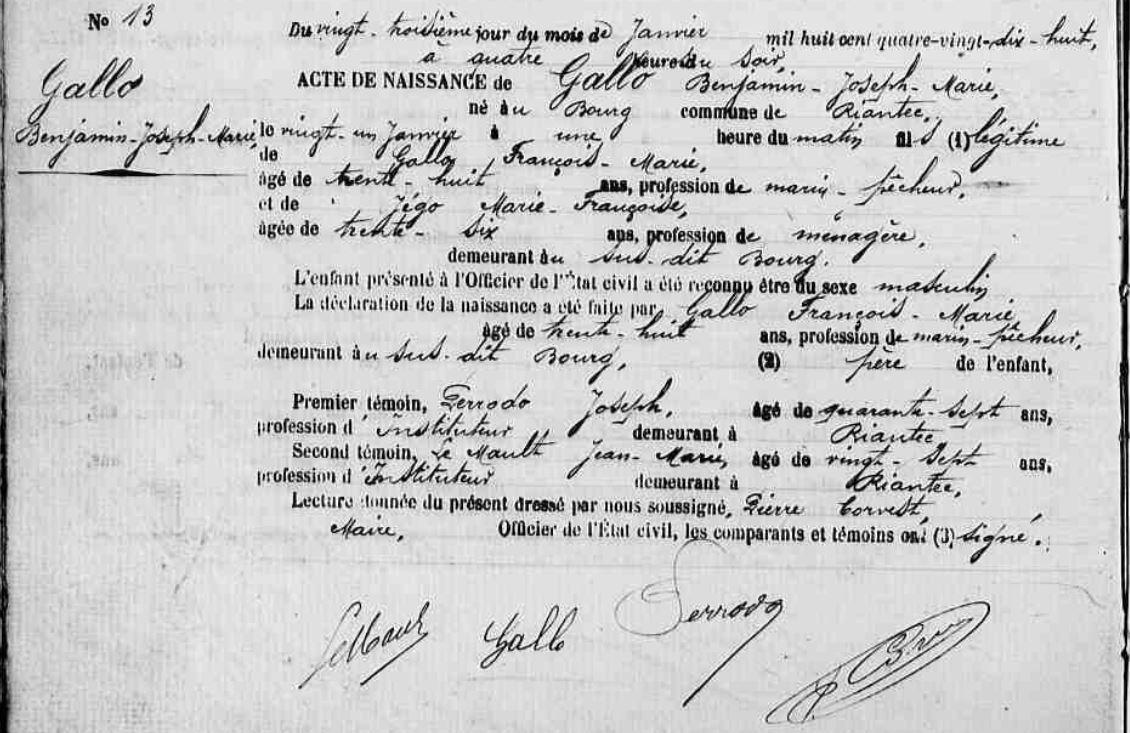 No 13
Du vingt-troisième jour du mois de Janvier mil huit cent quatre-vingt-dix-huit,
à quatre heures du soir,
Gallo
Benjamin-Joseph-Marie,
ACTE DE NAISSANCE de Gallo Benjamin-Joseph-Marie,
né au Bourg commune de Riantec,
le vingt-un Janvier à une heure du matin fils (1) légitime
de Gallo François-Marie,
âgé de trente-huit ans, profession de marin-pêcheur,
et de Jégo Marie-Françoise,
âgée de trente-six ans, profession de ménagère,
demeurant au sus-dit Bourg.
L'enfant présenté à l'Officier de l'État civil a été reconnu être du sexe masculin
La déclaration de la naissance a été faite par Gallo François-Marie
âgé de trente-huit ans, profession de marin-pêcheur,
demeurant au sus-dit Bourg, (2) père de l'enfant,
Premier témoin, Perrodo Joseph, âgé de quarante-sept ans,
profession d'Instituteur demeurant à Riantec
Second témoin, Le Mault Jean-Marie, âgé de vingt-sept ans,
profession d'Instituteur demeurant à Riantec,
Lecture donnée du présent dressé par nous soussigné, Pierre Corvest,
Maire, Officier de l'État civil, les comparants et témoins ont (3) signé.
Gallo Perrodo